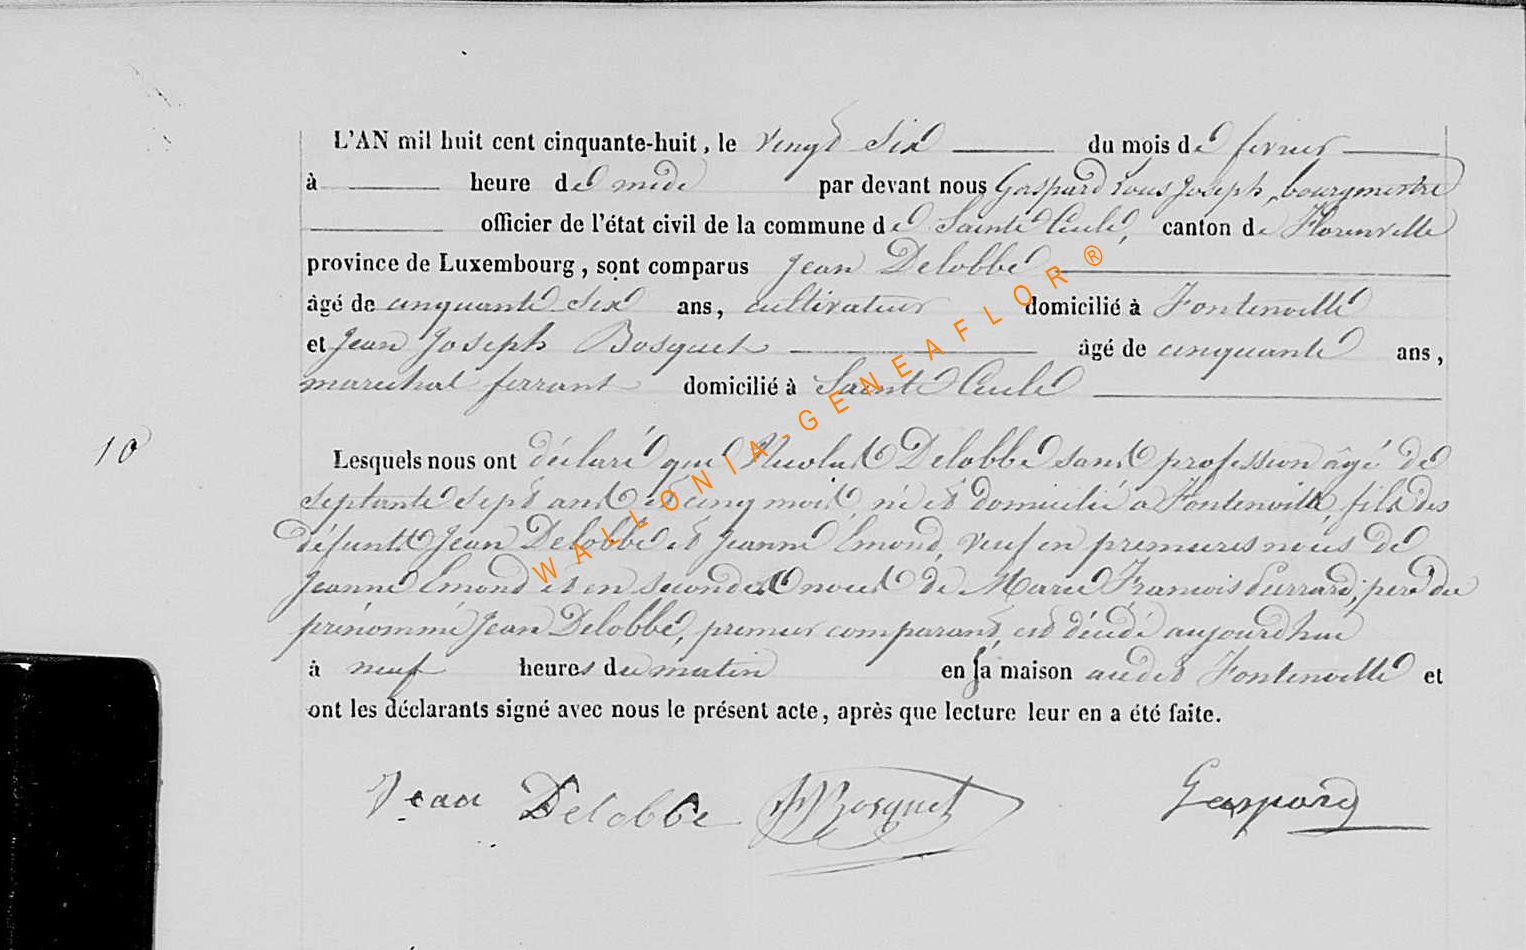 L'AN mil huit cent cinquante-huit, le vingt six du mois de fevrier
à heure de midi par devant nous Gaspard Louis Joseph, bourgmestre
officier de l'état civil de la commune de Sainte Cecile, canton de Florenville
province de Luxembourg, sont comparus Jean Delobbe
âgé de cinquante six ans, cultivateur domicilié à Fontenoille
et Jean Joseph Bosquet âgé de cinquante ans,
marechal ferrant domicilié à Sainte Cecile
10
Lesquels nous ont déclaré que Nicolas Delobbe sans profession âgé de
septante sept ans et cinq mois, né et domicilié a Fontenoille, fils des
défunts Jean Delobbe et Jeanne Emond, veuf en premieres noces de
Jeanne Emond et en secondes noces de Marie François Purrard, pere du
prénommé Jean Delobbe, premier comparant, est décédé aujourd'hui
à neuf heures du matin en sa maison audit Fontenoille et
ont les déclarants signé avec nous le présent acte, après que lecture leur en a été faite.
Jean Delobbe JJBosquet Gaspard
WALLONIA-GENEAFLOR®